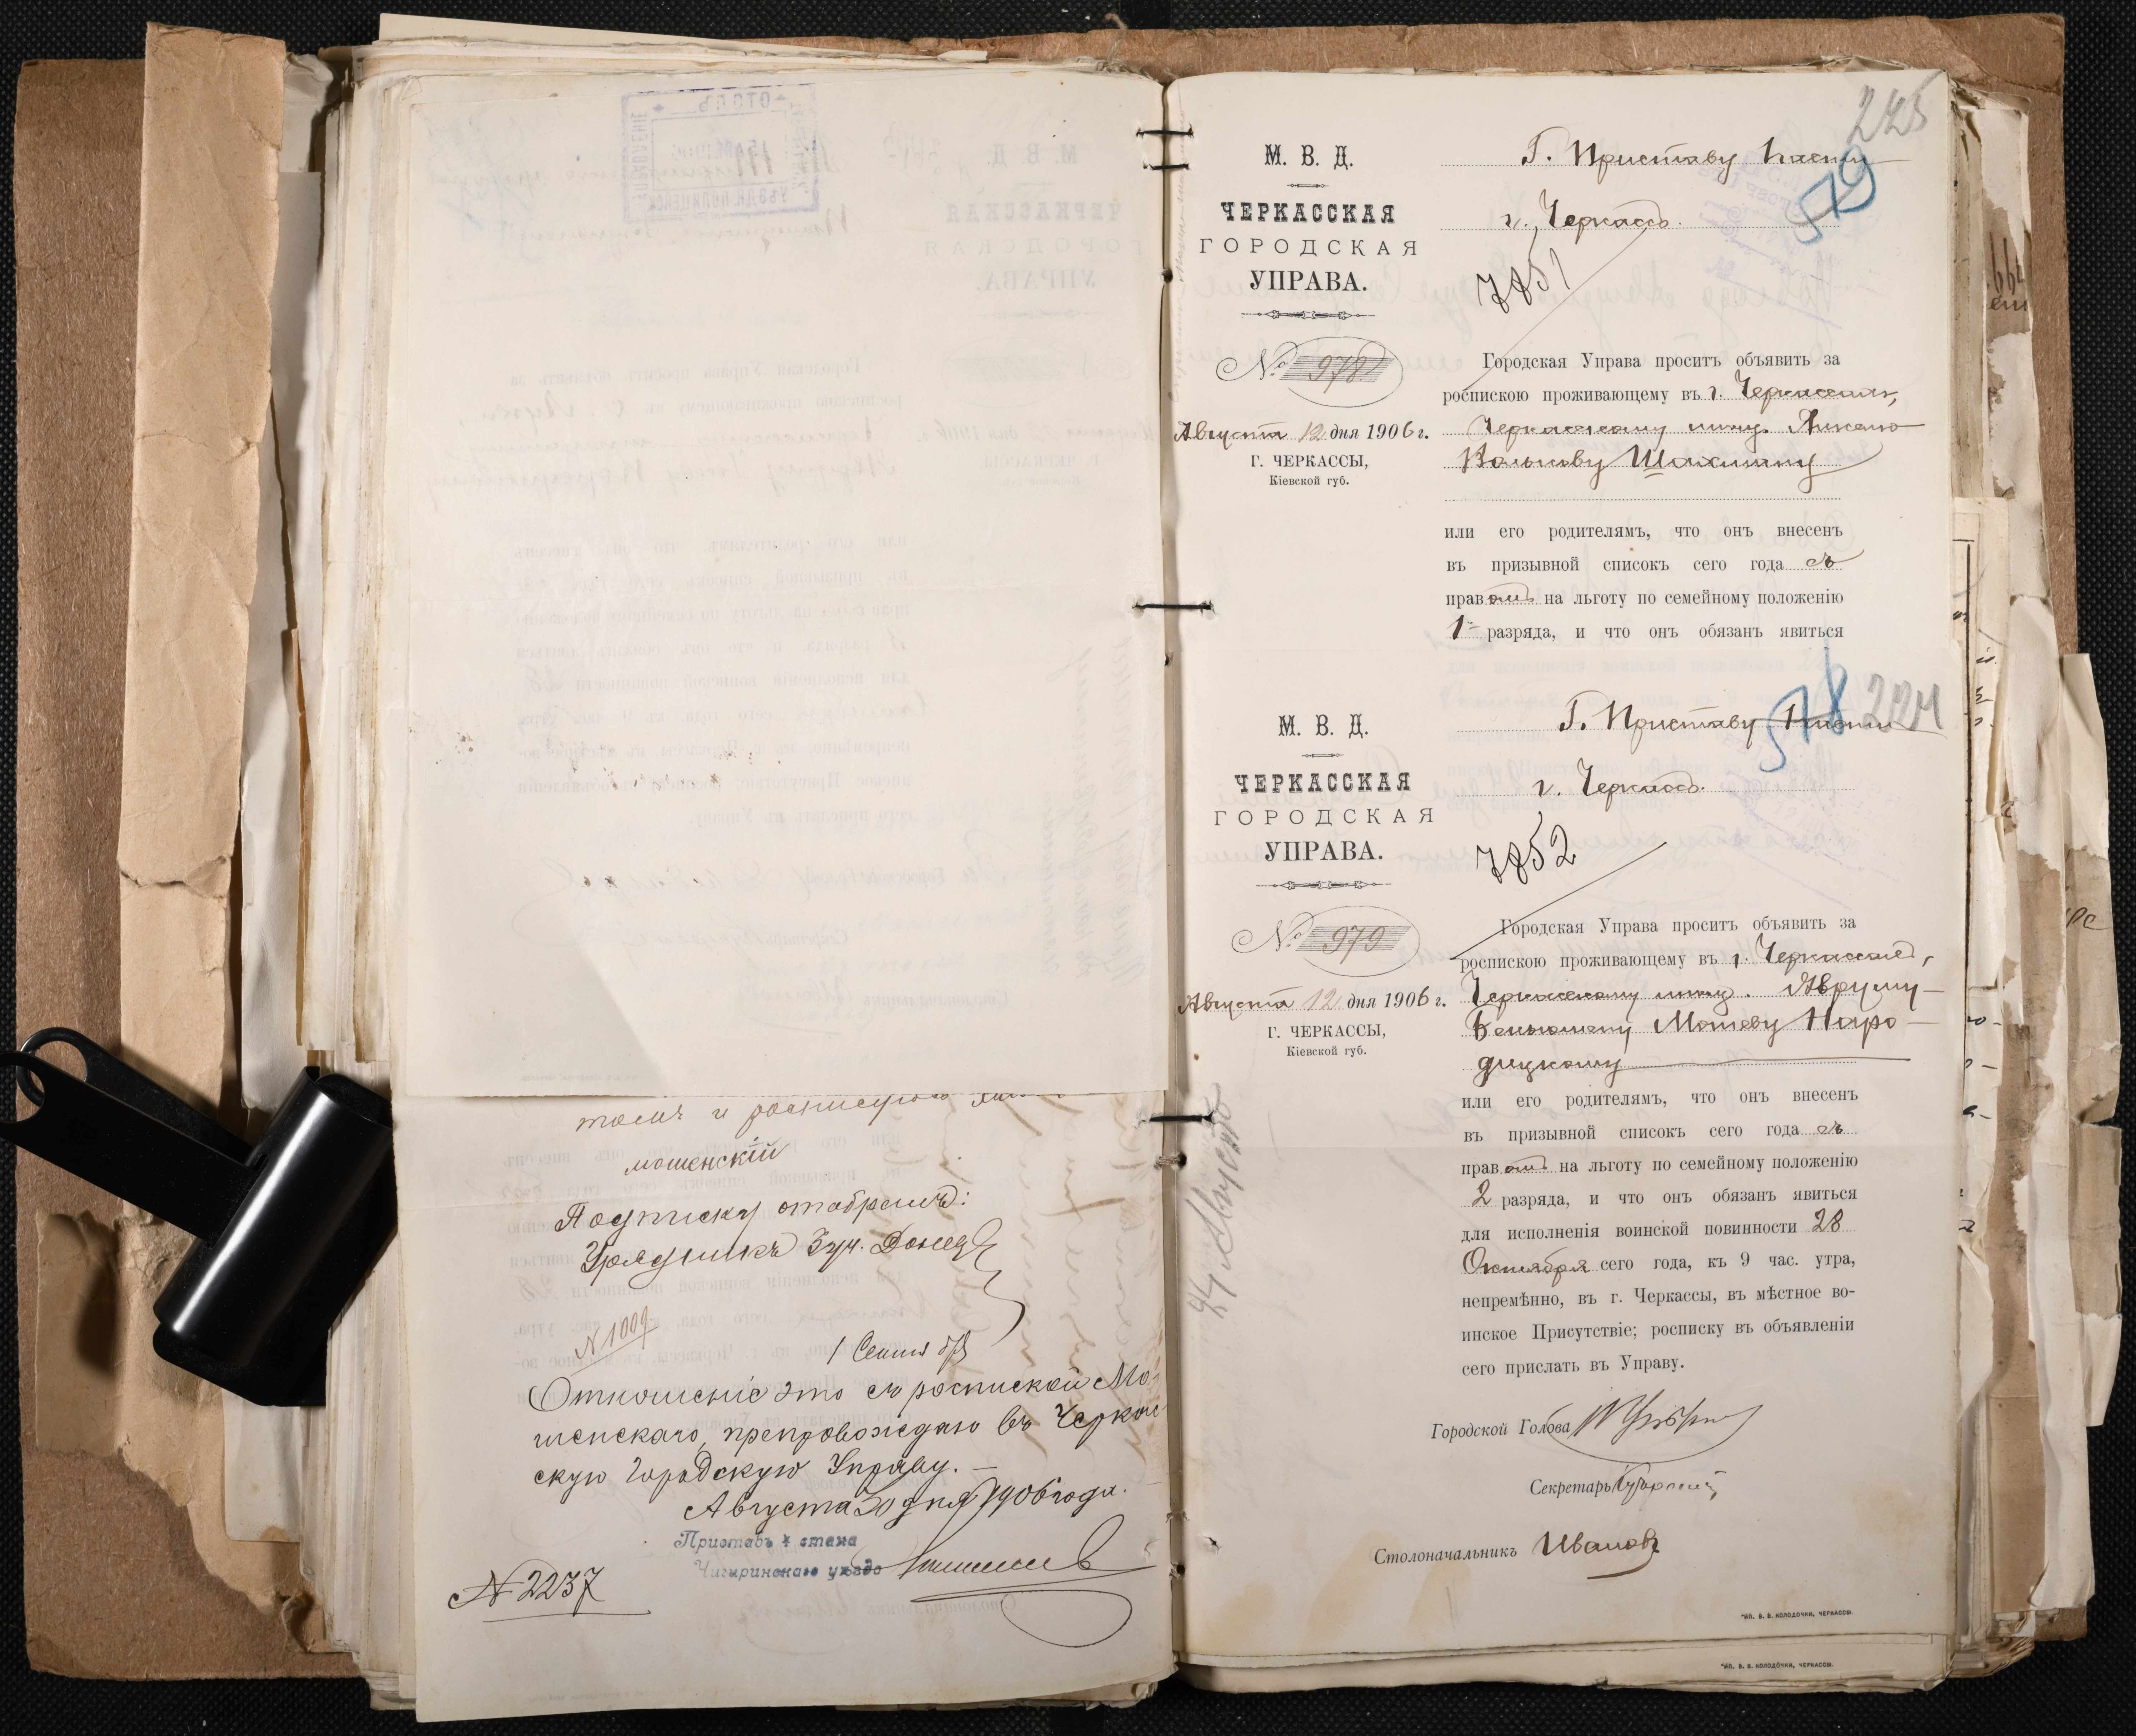 томъ и росписуюсь
мошенскій
Подписку отобралъ:
Урядникъ 3 уч. Донецъ
№ 1009
1 Сентября
Отношеніе это съ роспиской Мо-
шенскаго, препровождаю въ Черкас
скую Городскую Управу. —
Августа 30 дня 1906 года.
Приставъ 4 стана
Чигиринскаго уѣзда
№ 2237
225
579
М. В. Д.
ЧЕРКАССКАЯ
ГОРОДСКАЯ
УПРАВА.
№ 978
Августа 12 дня 1906 г.
Г. ЧЕРКАССЫ,
Кіевской губ.
Г. Приставу части
г. Черкассъ.
7851
Городская Управа проситъ объявить за
роспискою проживающему въ г. Черкассахъ,
Черкасскому мѣщ.
Шахшину
или его родителямъ, что онъ внесенъ
въ призывной списокъ сего года съ
правомъ на льготу по семейному положенію
1 разряда, и что онъ обязанъ явиться
578 224
М. В. Д.
ЧЕРКАССКАЯ
ГОРОДСКАЯ
УПРАВА.
№ 979
Августа 12 дня 1906 г.
Г. ЧЕРКАССЫ,
Кіевской губ.
24 Августа
Г. Приставу части
г. Черкассъ.
7852
Городская Управа проситъ объявить за
роспискою проживающему въ г. Черкассахъ,
Черкасскому мѣщ. Авруму-
Беньюмену Мошеву Наро-
дицкому
или его родителямъ, что онъ внесенъ
въ призывной списокъ сего года съ
правомъ на льготу по семейному положенію
2 разряда, и что онъ обязанъ явиться
для исполненія воинской повинности 28
Октября сего года, къ 9 час. утра,
непремѣнно, въ г. Черкассы, въ мѣстное во-
инское Присутствіе; росписку въ объявленіи
сего прислать въ Управу.
Городской Голова
Секретарь
Столоначальникъ Ивановъ
Тип. В. В. КОЛОДОЧКИ, ЧЕРКАССЫ.
Тип. В. В. КОЛОДОЧКИ, ЧЕРКАССЫ.